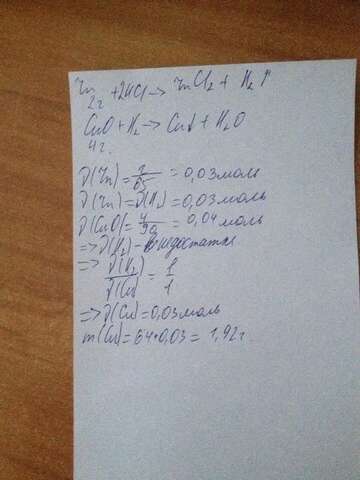 Zn + 2HCl → ZnCl₂ + H₂↑
2г
CuO + H₂ → Cu↓ + H₂O
4г.
ν(Zn) = 2/65 = 0,03 моль
ν(Zn) = ν(H₂) = 0,03 моль
ν(CuO) = 4/90 = 0,04 моль
=> ν(H₂) - в недостатке
=> ν(H₂)/ν(Cu) = 1/1
=> ν(Cu) = 0,03 моль
m(Cu) = 64·0,03 = 1,92 г.